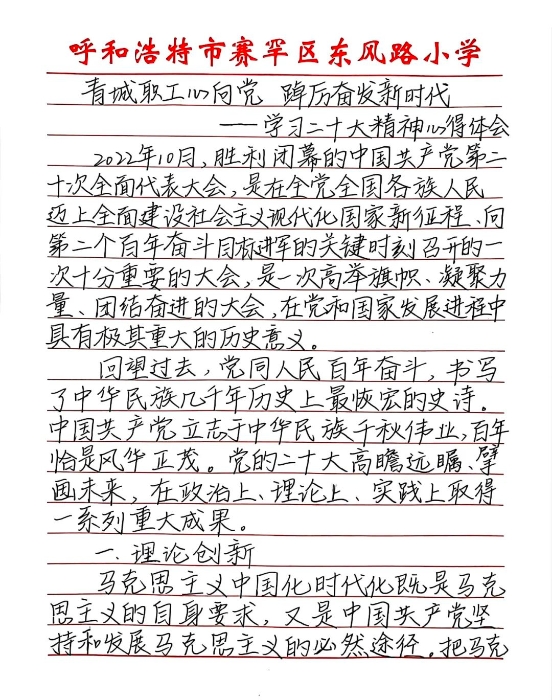 呼和浩特市赛罕区东风路小学
青城职工心向党 踔厉奋发新时代
——学习二十大精神心得体会
2022年10月,胜利闭幕的中国共产党第二
十次全面代表大会,是在全党全国各族人民
迈上全面建设社会主义现代化国家新征程、向
第二个百年奋斗目标进军的关键时刻召开的一
次十分重要的大会,是一次高举旗帜、凝聚力
量、团结奋进的大会,在党和国家发展进程中
具有极其重大的历史意义。
回望过去,党同人民百年奋斗,书写
了中华民族几千年历史上最恢宏的史诗。
中国共产党立志于中华民族千秋伟业,百年
恰是风华正茂。党的二十大高瞻远瞩、擘
画未来,在政治上、理论上、实践上取得
一系列重大成果。
一、理论创新
马克思主义中国化时代化既是马克
思主义的自身要求,又是中国共产党坚
持和发展马克思主义的必然途径。把马克